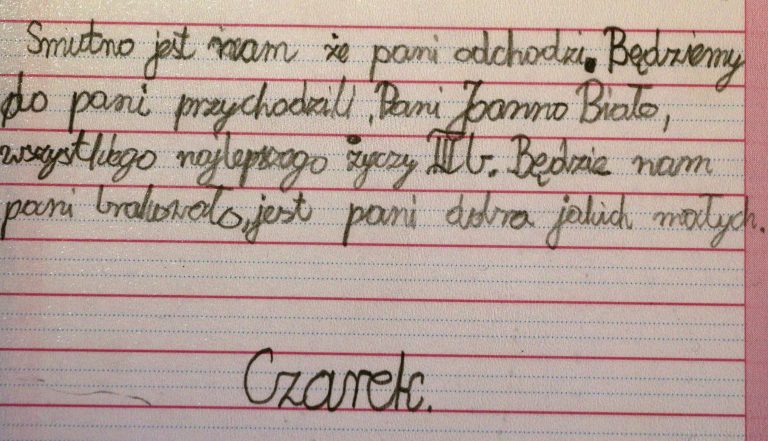 Smutno jest nam że pani odchodzi. Będziemy
do pani przychodzili. Pani Joanno Biało,
wszystkiego najlepszego życzy III b. Będzie nam
pani brakowało, jest pani dobra jakich małych.
Czarek.